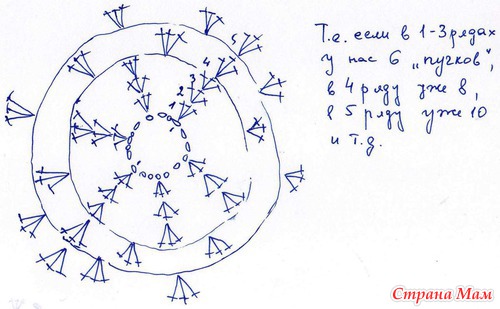 Т.е. если в 1-3 рядах
у нас 6 „пучков",
в 4 ряду уже 8,
в 5 ряду уже 10
и т.д.
5
4
3
2
1
Страна Мам